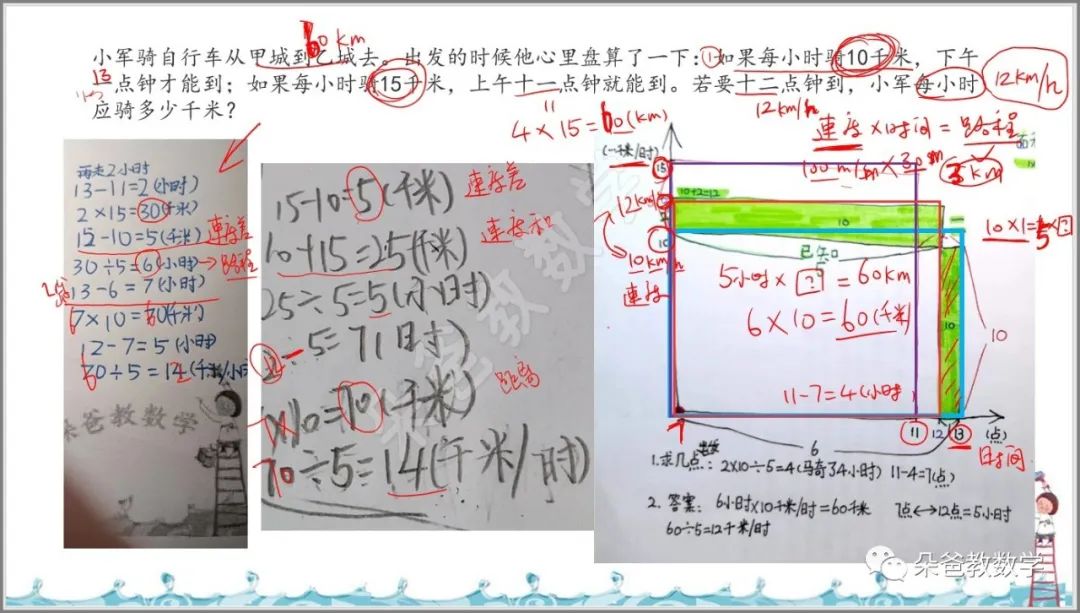 60 km
小军骑自行车从甲城到乙城去。出发的时候他心里盘算了一下:①如果每小时骑10千米，下午
13
1点钟才能到；如果每小时骑15千米，上午十一点钟就能到。若要十二点钟到，小军每小时
12km/h
应骑多少千米？
11
12km/h
4×15=60(km)
速度×时间=路程
再走2小时
13-11=2(小时)
2×15=30(千米)
15-10=5(千米)
速度差
30÷5=6(小时)→路程
13-6=7(小时)
6×10=60(千米)
12-7=5(小时)
60÷5=12(千米/小时)
朵爸教数学
15-10=5(千米)
速度差
10+15=25(千米)
速度和
25÷5=5(小时)
12-5=7(日时)
7×10=70(千米)
距离
70÷5=14(千米/时)
朵爸教数学
(千米/时)
15
10+2=12
12km/h
10
10
10km/h
速度
已知
10×1=5×?
5小时×?=60km
6×10=60(千米)
10
10
11-7=4(小时)
7
11
12
13
(点)
出发
6
时间
1.求几点：2×10÷5=4(骑了4小时) 11-4=7(点)
2.答案：6小时×10千米/时=60千米 7点↔12点=5小时
60÷5=12千米/时
朵爸教数学